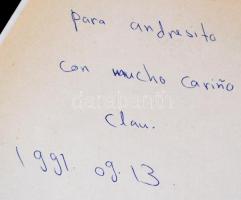 para andresito
con mucho cariño
darabanth
Clau.
1991. 09. 13